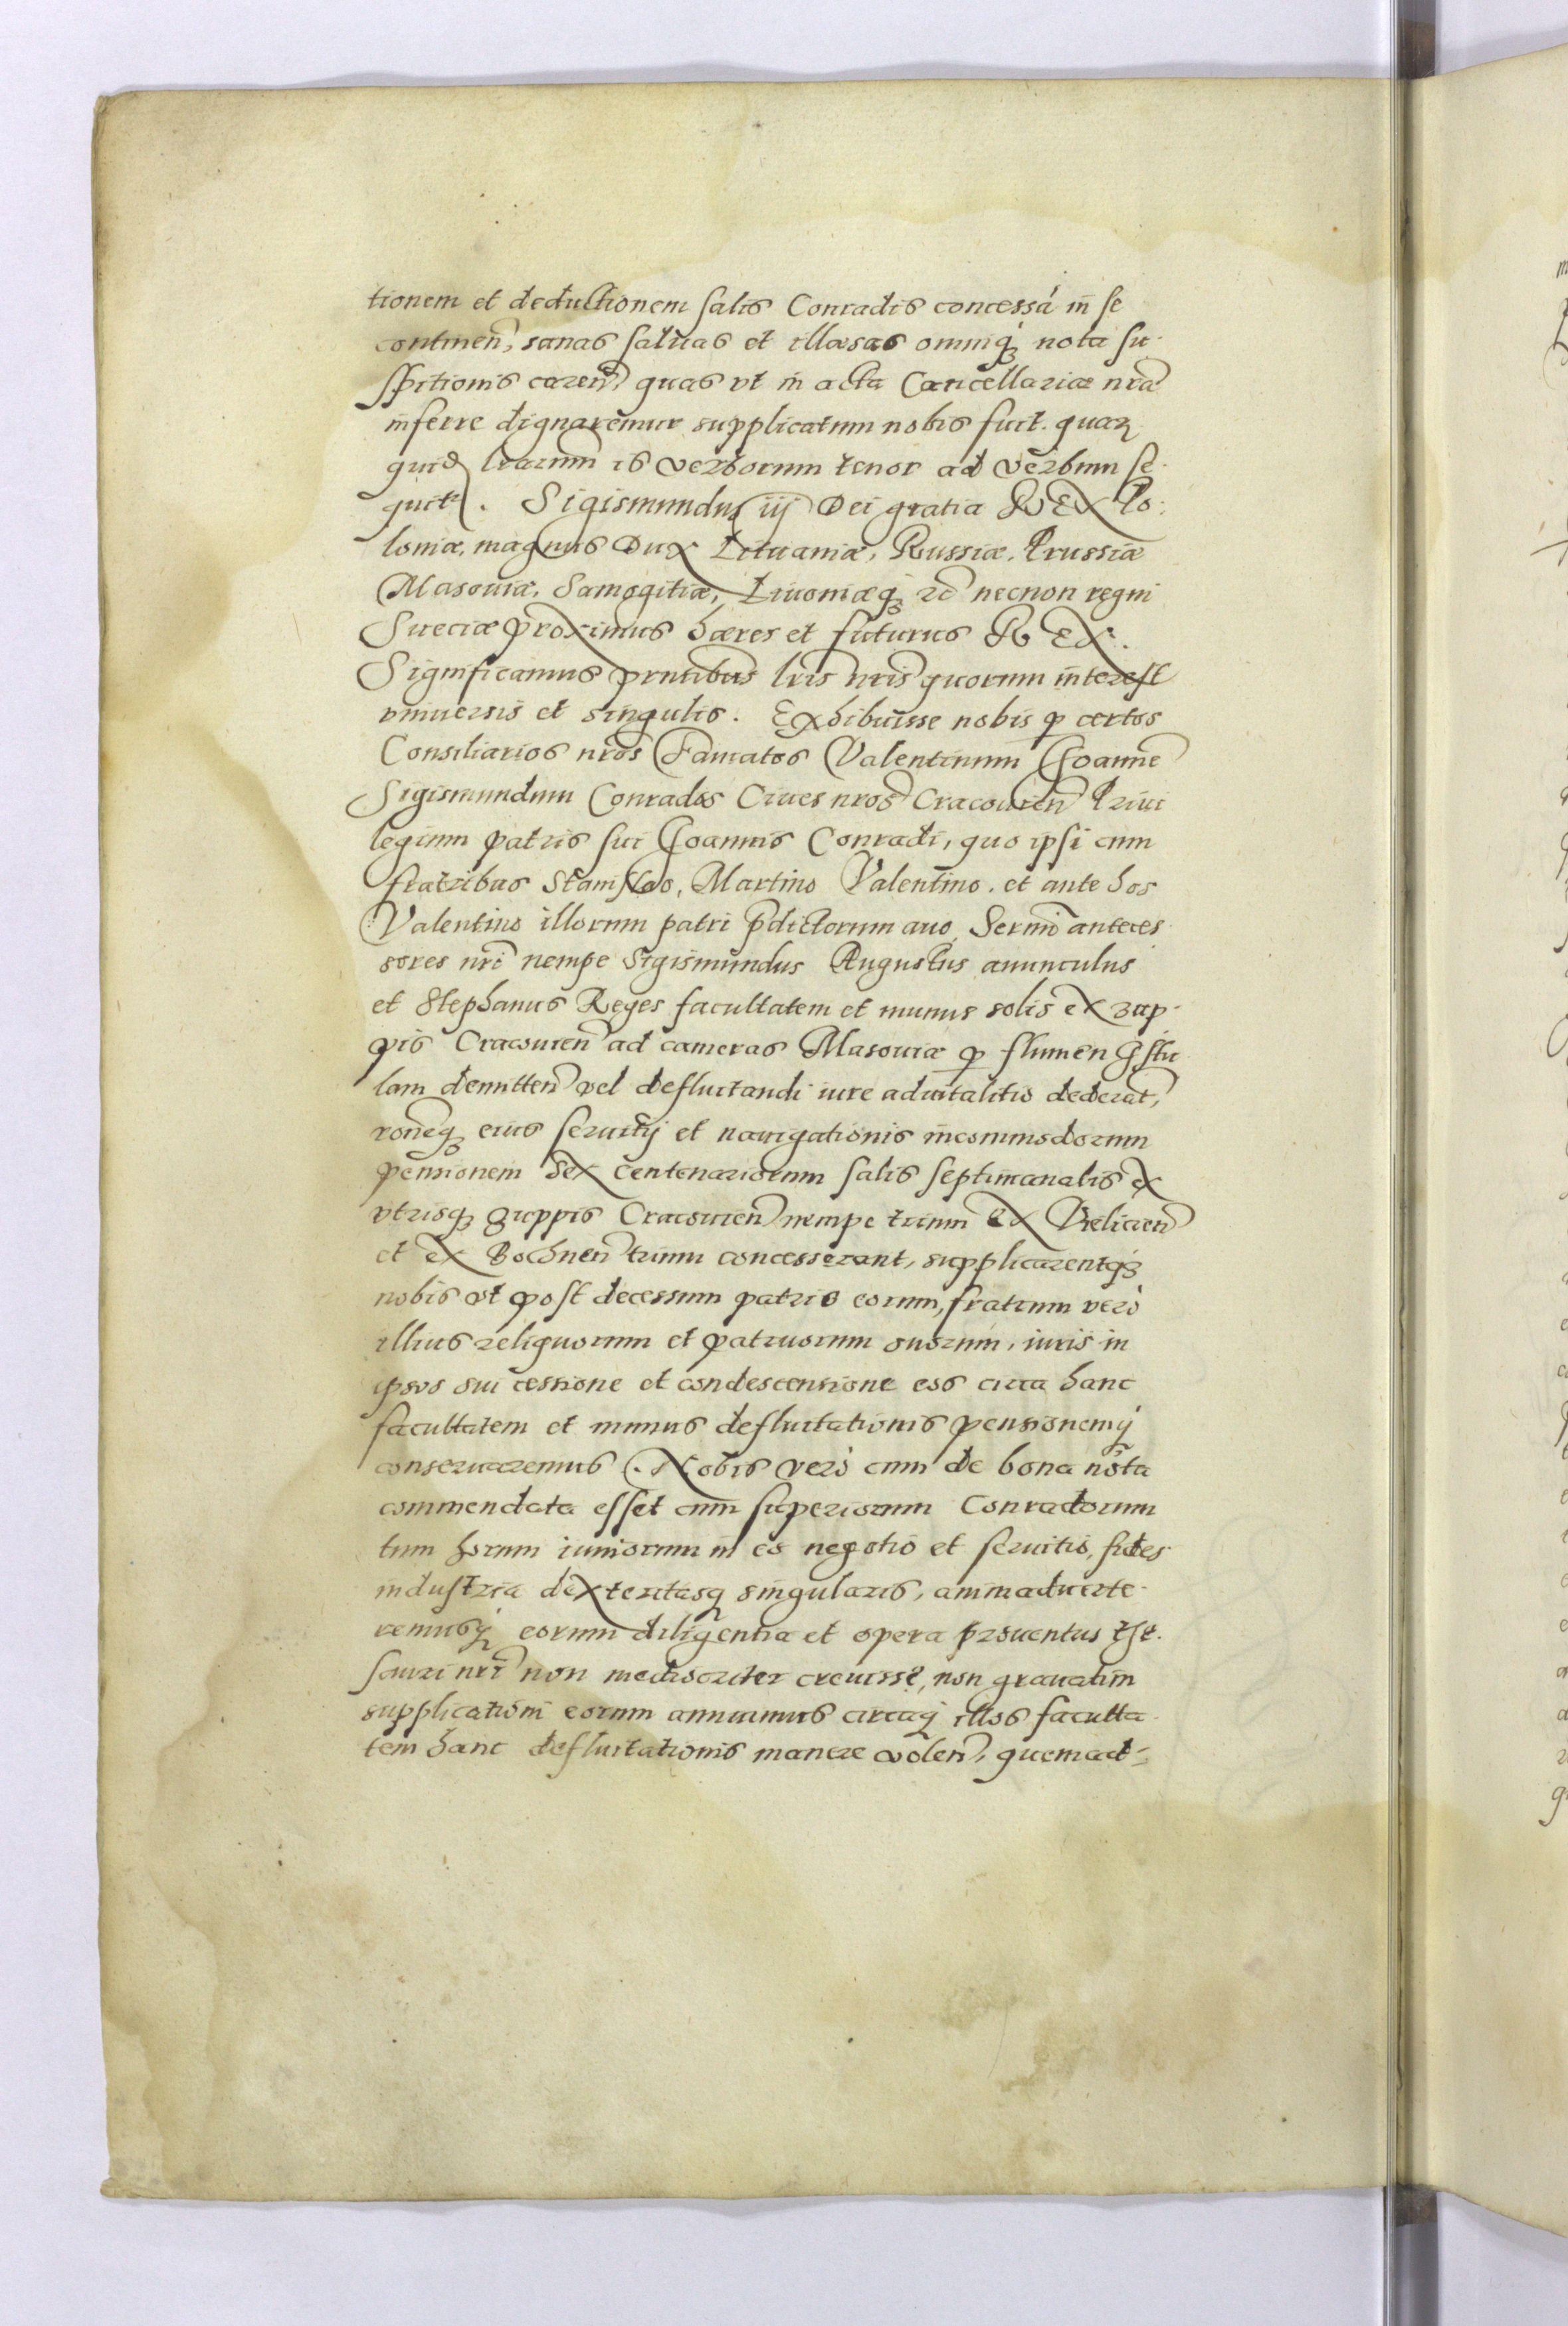 tionem et deductionem salis Conradis concessã in se
continen, sanas saluas et illæsas omniq́ꝫ nota su-
spitionis caren̄, quas vt in acta Cancellariæ nr̃a
inferre dignaremur supplicatum nobis fuit. quaꝝ
quid lr̃arum is verborum tenor ad verbum se-
quit̃. Sigismundus iij Dei gratia REX Po-
loniæ, magnus Dux Lituaniæ, Russiæ, Prussiæ
Masouiæ, Samogitiæ, Liuoniæqꝫ ꝛc̃ necnon regni
Sueciæ proximus hæres et futurus REX.
Significamus prñtibus lr̃is nr̃is quorum interest
vniuersis et singulis. Exhibuisse nobis ꝑ certos
Consiliarios nr̃os Famatos Valentinum Joannẽ
Sigismundum Conrados Ciues nr̃os Cracouieñ Priui
legium patris sui Joannis Conradi, quo ipsi cum
fratribus Stanislao, Martino Valentino, et ante hos
Valentino illorum patri p̃dictorum auo, Sermi anteces-
sores nr̃i nempe Sigismundus Augustus auunculus
et Stephanus Reges facultatem et munus solis ex zup-
pis Cracouieñ ad cameras Masouiæ ꝑ flumen Istu
lam demitteñ vel defluitandi iure aduitalitio dederat̃,
rõneqꝫ eius seruitij et nauigationis incommodorum
pensionem sex centenariorum salis septimanalis ex
vtrisqꝫ zuppis Cracouieñ nempe trium ex Vielicieñ
et ex Bochneñ trium concesserant, supplicarentqꝫ
nobis vt post decessum patris eorum, fratrum verò
illius reliquorum et patruorum suorum, iuris in
ipsos sui cessione et condescensione eos circa hanc
facultatem et munus defluitationis pensionemq́
conseruaremus. Nobis verò cum de bona nota
commendata esset cum superiorum Conradorum
tum horum iuniorum in eo negotio et seruitio, fides
industria dexteritasq singularis, animaduerte-
remusq́ eorum diligentia et opera prouentus The-
sauri nr̃i non mediocriter creuisse, non grauatim
supplicationi eorum annuimus circaq́ illos faculta-
tem hanc defluitationis manere voleñ, quemad-